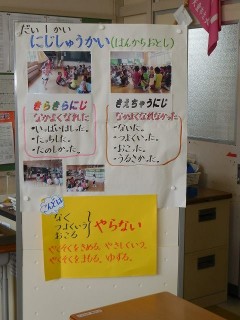 だい1かい
にじしゅうかい(はんかちおとし)
きらきらにじ
なかよくなれた
・いっぱいはしった。
・たっちした。
・たのしかった。
きえちゃうにじ
なかよくなれなかった
・ないた。
・つよくいった。
・おこった。
・うるさかった。
なく
つよくいう
おこる
やらない
やくそくをきめる。やさしくいう。
やくそくをまもる。ゆずる。